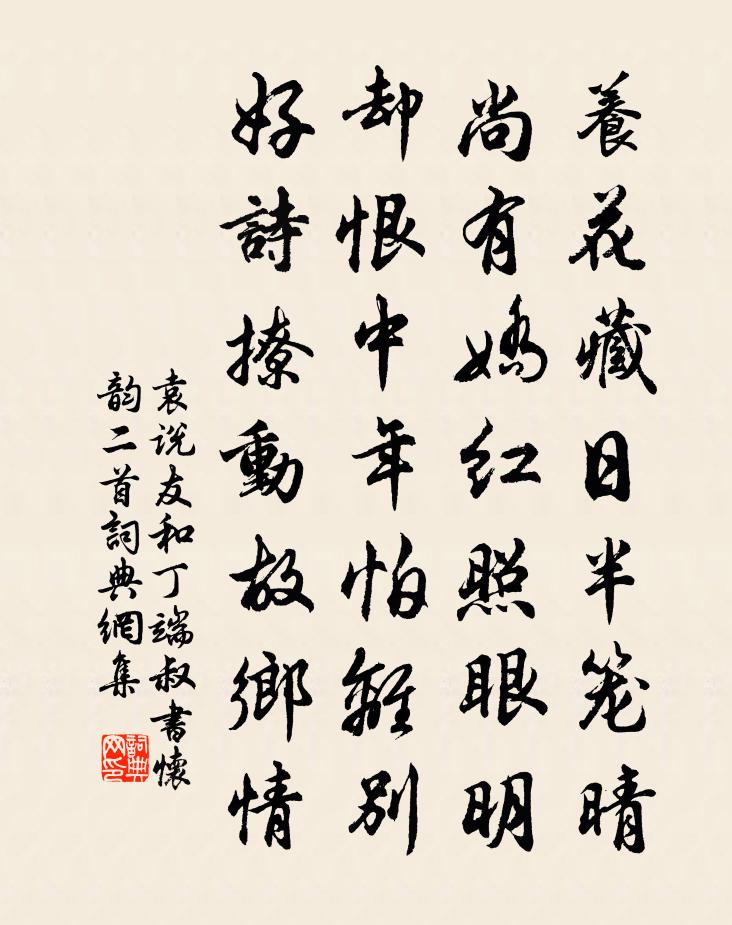 養花藏日半笼晴
尚有嬌红照眼明
却恨中年怕離别
好詩撩動故鄉情
袁说友和丁端叔書懷
韵二首詞典網集
詞典网印